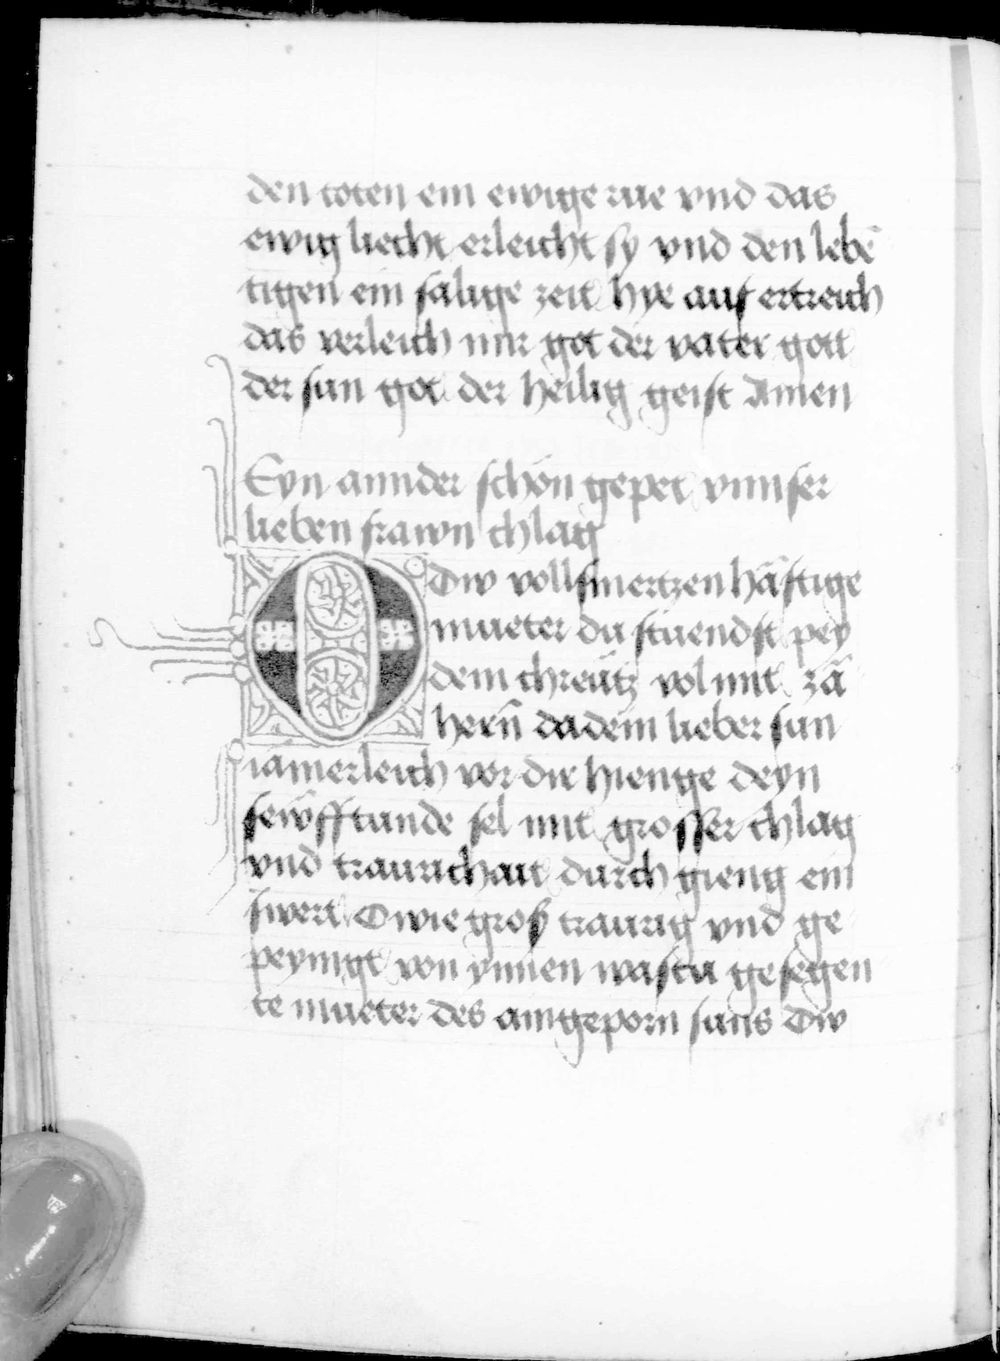 den toten ein ewige rue vnd das
ewig liecht erleicht sy vnd den lebē
tigen ein sälige zeit hye auf ertreich
das verleich mir got der vater gott
der sun got der heilig geist Amen
Eyn annder schön gepet vnnser
lieben frawn chlag
O Dw voll smertzen häftige
mueter du stuendst pey
dem chreütz vol mit zä
hern̄ da dein lieber sun
iämerleich vor dir hienge deyn
sewfftunde sel mit grosser chlag
vnd traurichait durch gieng ein
swert O wie groß traurig vnd ge
peynigt von ynnen wastu gesegen
te mueter des aingeporn suns Dw